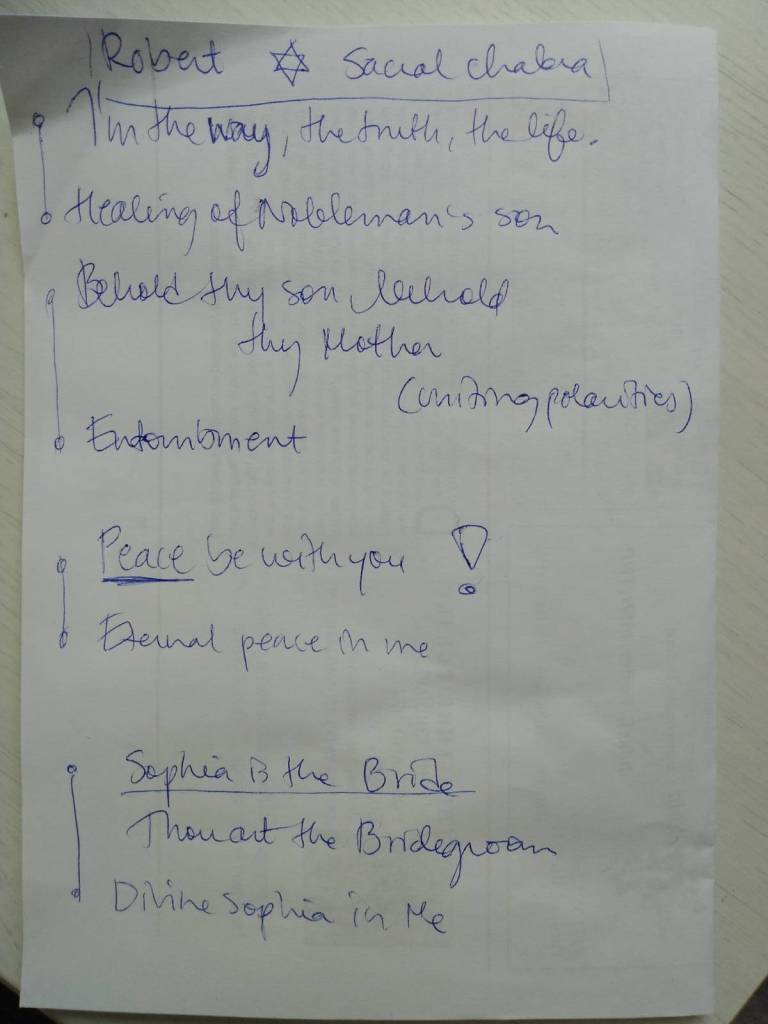 Robert ✡ Sacral chakra
I'm the way, the truth, the life.
Healing of Nobleman's son
Behold thy son, behold
thy Mother
(uniting polarities)
Entombment
Peace be with you !
Eternal peace in me
Sophia is the Bride
Thou art the Bridegroom
Divine Sophia in Me